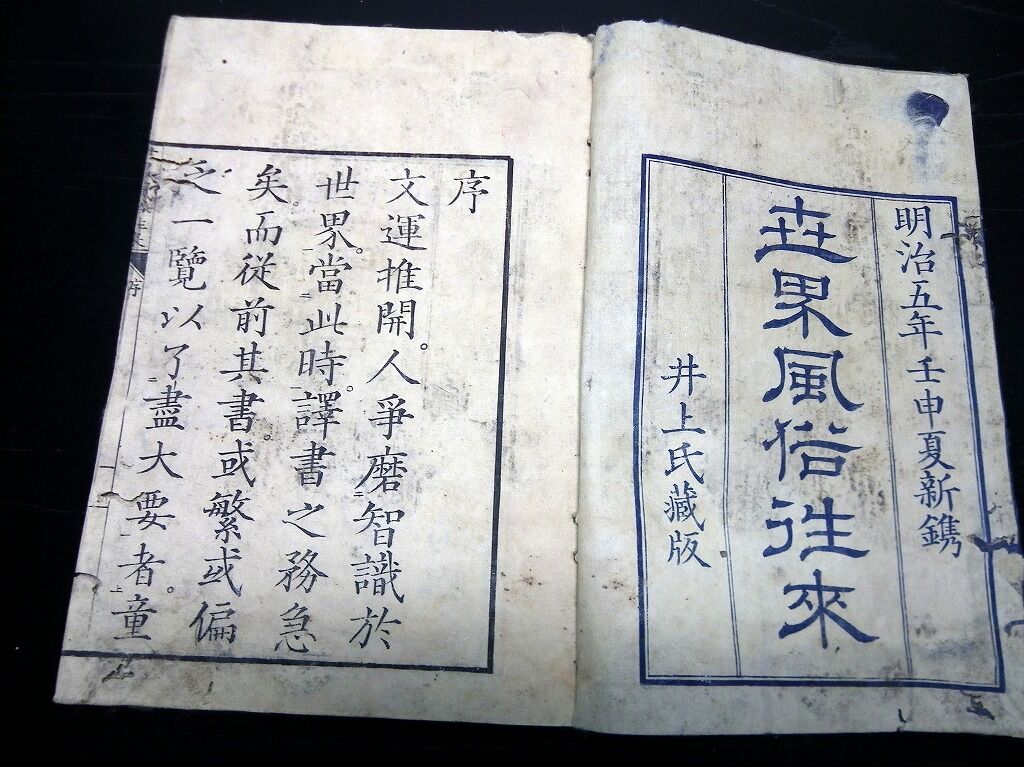 明治五年壬申夏新鐫
世界風俗往來
井上氏藏版
序
文運推開。人爭磨智識於
世界。當此時。譯書之務急
矣。而從前其書。或繁或偏
乏一覽以了盡大要者。童